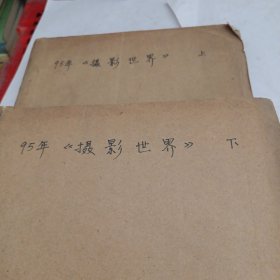 95年《摄影世界》 上
95年《摄影世界》 下